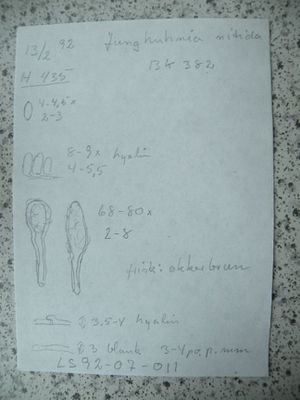 13/2 92 Junghuhnia nitida
H 435 BK 382
4-4,5 x
2-3
8-9 x hyalin
4-5,5
68-80 x
2-8
frisk: okkerbrun
3,5-4 hyalin
3 blank 3-4 po. p. mm
LS92-07-011